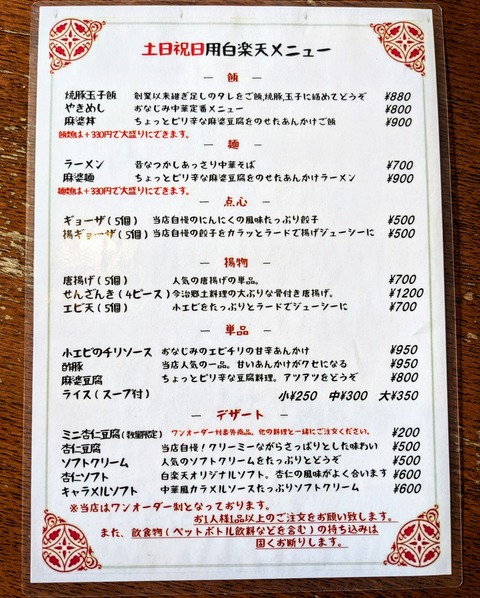 土日祝日用白楽天メニュー
― 飯 ―
焼豚玉子飯 創業以来継ぎ足しのタレをご飯,焼豚,玉子に絡めてどうぞ ¥880
やきめし おなじみ中華定番メニュー ¥800
麻婆丼 ちょっとピリ辛な麻婆豆腐をのせたあんかけご飯 ¥900
飯類は+330円で大盛りにできます。
― 麺 ―
ラーメン 昔なつかしあっさり中華そば ¥700
麻婆麺 ちょっとピリ辛な麻婆豆腐をのせたあんかけラーメン ¥900
麺類は+330円で大盛りにできます。
― 点心 ―
ギョーザ(5個) 当店自慢のにんにくの風味たっぷり餃子 ¥500
揚ギョーザ(5個) 当店自慢の餃子をカラッとラードで揚げジューシーに ¥500
― 揚物 ―
唐揚げ(5個) 人気の唐揚げの単品。 ¥700
せんざんき(4ピース) 今治郷土料理の大ぶりな骨付き唐揚げ。 ¥1200
エビ天(5個) 小エビをたっぷりとラードでジューシーに ¥700
― 単品 ―
小エビのチリソース おなじみのエビチリの甘辛あんかけ ¥950
酢豚 当店人気の一品。甘いあんかけがクセになる ¥950
麻婆豆腐 ちょっとピリ辛な豆腐料理。アツアツをどうぞ ¥800
ライス(スープ付) 小¥250 中¥300 大¥350
― デザート ―
ミニ杏仁豆腐(数量限定) ワンオーダー対象外商品。他の料理と一緒にご注文ください。 ¥200
杏仁豆腐 当店自慢!クリーミーながらさっぱりとした味わい ¥500
ソフトクリーム 人気のソフトクリームをたっぷりとどうぞ ¥500
杏仁ソフト 白楽天オリジナルソフト。杏仁の風味がよく合います ¥600
キャラメルソフト 中華風カラメルソースたっぷりソフトクリーム ¥600
※当店はワンオーダー制となっております。
お1人様1品以上のご注文をお願い致します。
また、飲食物(ペットボトル飲料などを含む)の持ち込みは
固くお断りします。